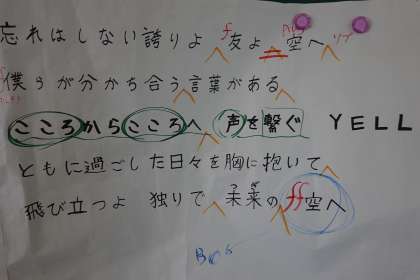 忘れはしない誇りよ 友よ 空へ
僕らが分かち合う言葉がある
こころからこころへ 声を繋ぐ YELL
ともに過ごした日々を胸に抱いて
飛び立つよ 独りで 未来の ff 空へ